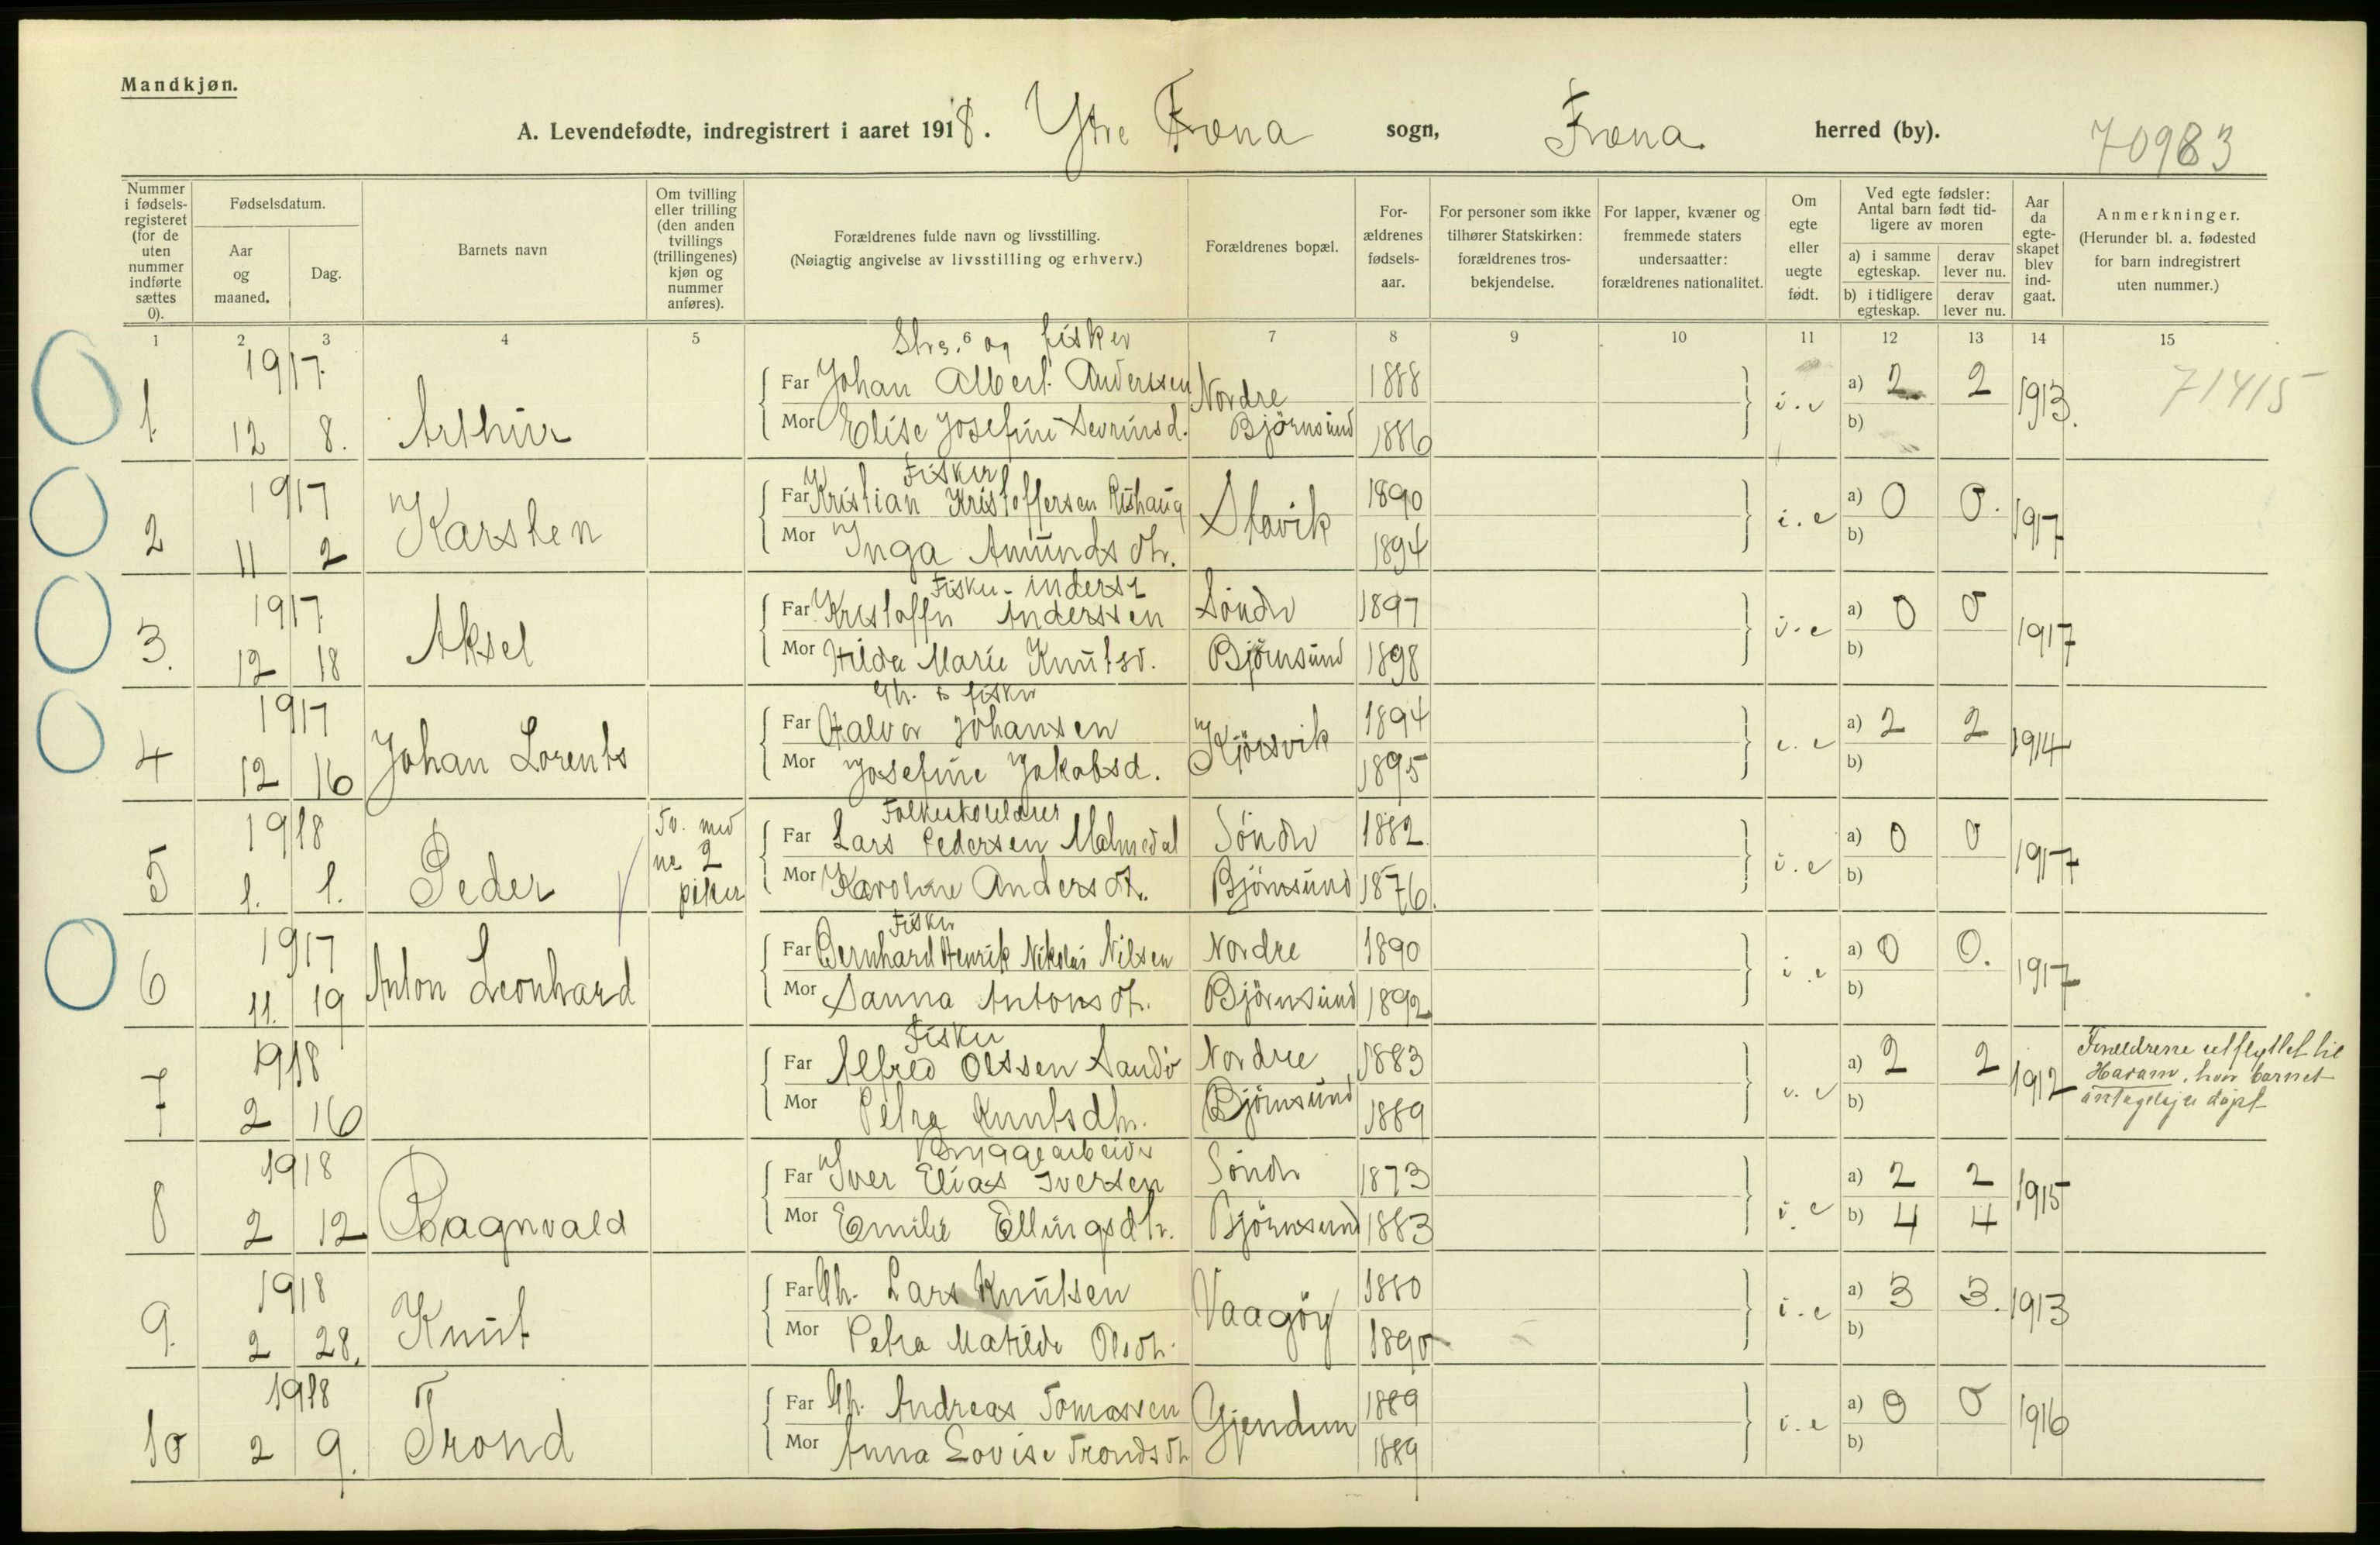 Mandkjøn.
A. Levendefødte, indregistrert i aaret 1918. Ytre Fræna sogn, Fræna herred (by). 70983
Nummer i fødsels-registeret (for de uten nummer indførte sættes 0).
Fødselsdatum.
Aar og maaned.
Dag.
Barnets navn
Om tvilling eller trilling (den anden tvillings (trillingenes) kjøn og nummer anføres).
Forældrenes fulde navn og livsstilling.
(Nøiagtig angivelse av livsstilling og erhverv.)
Forældrenes bopæl.
For-ældrenes fødsels-aar.
For personer som ikke tilhører Statskirken: forældrenes tros-bekjendelse.
For lapper, kvæner og fremmede staters undersaatter: forældrenes nationalitet.
Om egte eller uegte født.
Ved egte fødsler: Antal barn født tid-ligere av moren
a) i samme egteskap. derav lever nu.
b) i tidligere egteskap. derav lever nu.
Aar da egte-skapet blev ind-gaat.
Anmerkninger.
(Herunder bl. a. fødested for barn indregistrert uten nummer.)
1 2 3 4 5 6 7 8 9 10 11 12 13 14 15
Strs. og fisker
1917 Far Johan Albert Anderssen Nordre 1888 a) 2 2 71415
1 12 8. Arthur Mor Elise Josefine Sevrinsd. Björnsund 1886 i.e b) 1913.
Fisker
1917 Far Kristian Kristoffersen Rishaug 1890 a) 0 0.
2 11 2 Karsten Mor Inga Amunds dtr. Stavik 1894 i.e b) 1917
Fisker - inderst
1917 Far Kristoffer Anderssen Söndre 1897 a) 0 0
3. 12 18 Aksel Mor Hilda Marie Knutsd. Björnsund 1898 i.e b) 1917
Gbr. & fisker
1917 Far Halvor Johansen 1894 a) 2 2
4 12 16 Johan Lorents Mor Josefine Jakobsd. Kjörsvik 1895 i.e b) 1914
Folkeskolelærer
1918 Tv. med Far Lars Pedersen Malmedal Söndre 1882. a) 0 0
5 1. 1. Peder nr 2 piker Mor Karoline Anders dtr. Björnsund 1876. i.e b) 1917
Fisker
1917 Far Bernhard Henrik Nikolai Nilsen Nordre 1890 a) 0 0.
6 11. 19 Anton Leonhard Mor Sanna Antons dtr. Björnsund 1892 i.e b) 1917
Fisker
1918 Far Alfred Olssen Sandö Nordre 1883 a) 2 2 Forældrene utflyttet til
7 2 16 Mor Petra Knutsdtr. Björnsund 1889 i.e b) 1912 Haram, hvor barnet
antagelig er döpt
Bryggearbeider
1918 Far Iver Elias Iversen Söndre 1873 a) 2 2
8 2 12 Ragnvald Mor Emilie Ellingsdtr. Björnsund 1883 i.e b) 4 4 1915
1918 Far Gbr. Lars Knutsen 1880 a) 3 3.
9. 2 28. Knut Mor Petra Matilde Olsdtr. Vaagöy 1890 i.e b) 1913
1918 Far Gbr. Andreas Tomassen 1889 a) 0 0
10 2 9. Trond Mor Anna Lovise Tronds dtr Gjendem 1889 i.e b) 1916